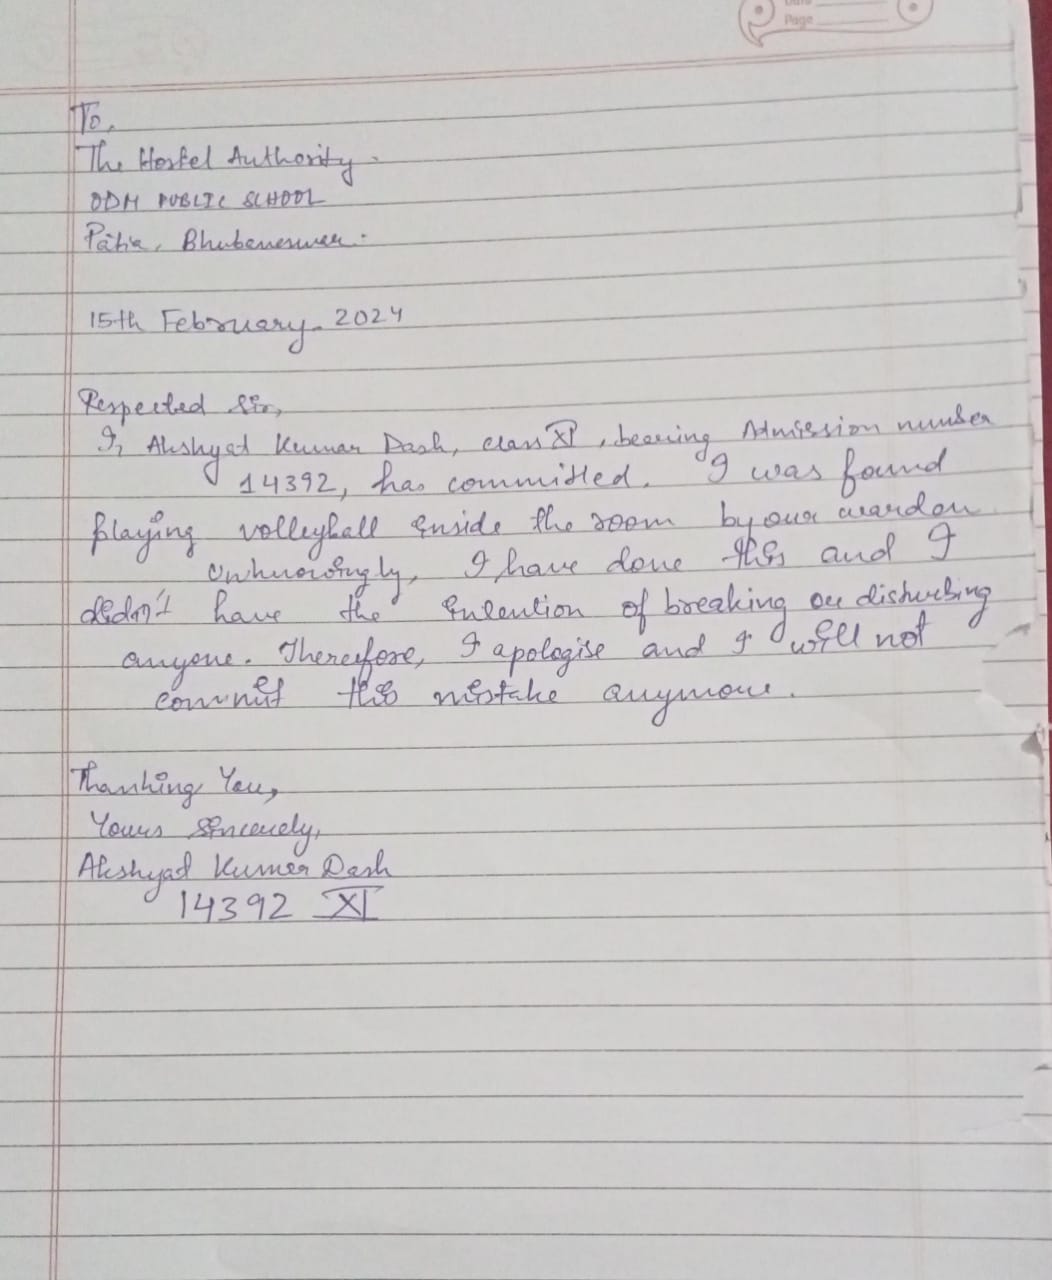 Page
To,
The Hostel Authority.
ODM PUBLIC SCHOOL
Patia, Bhubaneswar.
15th February, 2024
Respected Sir,
I, Akshyat Kumar Dash, class XI, bearing Admission number
14392, has committed. I was found
playing volleyball inside the room by our wardon
Unknowingly, I have done this and I
didn't have the intention of breaking or disturbing
anyone. Therefore, I apologise and I will not
commit this mistake anymore.
Thanking You,
Yours Sincerely,
Akshyat Kumar Dash
14392 XI